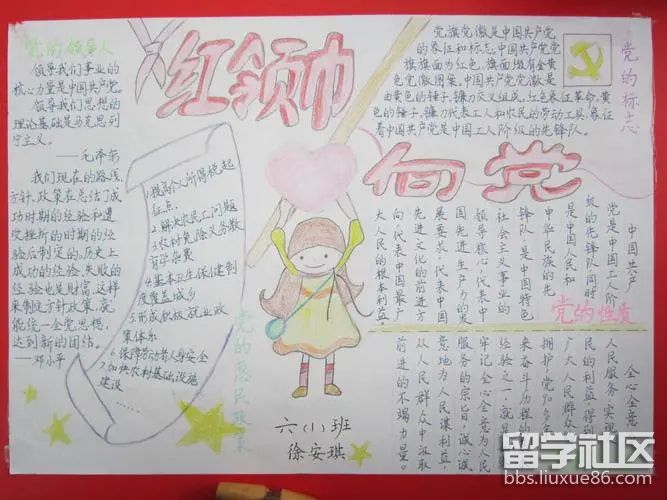 党的领导人
领导我们事业的
核心力量是中国共产党,
领导我们思想的
理论基础是马克思列
宁主义。
——毛泽东
我们现在的路线、
方针、政策在总结了成
功时期的经验和遭
受挫折的时期的经
验后制定的,历史上
成功的经验、失败的
经验也是财富,这样
来制定方针政策,就
能统一全党思想,
达到新的团结。
——邓小平
红领巾
向党
党旗党徽是中国共产党
的象征和标志。中国共产党党
旗旗面为红色,旗面缀有金黄
色党徽图案。中国共产党党徽是
由黄色的锤子、镰刀交叉组成。红色象征革命,黄
色的锤子、镰刀代表工人和农民的劳动工具,象征
着中国共产党是中国工人阶级的先锋队。
党的标志
1.提高个人所得税起
征点
2.解决农民工问题
3.农村免除义务教
育学杂费
4.基本卫生保健制
度覆盖城乡
5.形成积极就业政
策体系
6.保障劳动者人身安全
7.加快农村基础设施
建设
……
党的惠民政策
中国共产
党是中国工人阶
级的先锋队同时
是中国人民和
中华民族的先
锋队,是中国特色
社会主义事业的
领导核心,代表中
国先进生产力的发
展要求,代表中国
先进文化的前进方
向,代表中国最广
大人民的根本利益。
党的性质
全心全意
人民服务实现
民的利益得到
广大人民群众
拥护,党90多年
来奋斗为力
经验之一,就是
牢记全心全意为人民
服务的宗旨,诚心诚
意地为人民谋利益,
从人民群众中汲取
前进的不竭力量。
六(1)班
徐安琪
留学社区
bbs.liuxue86.com